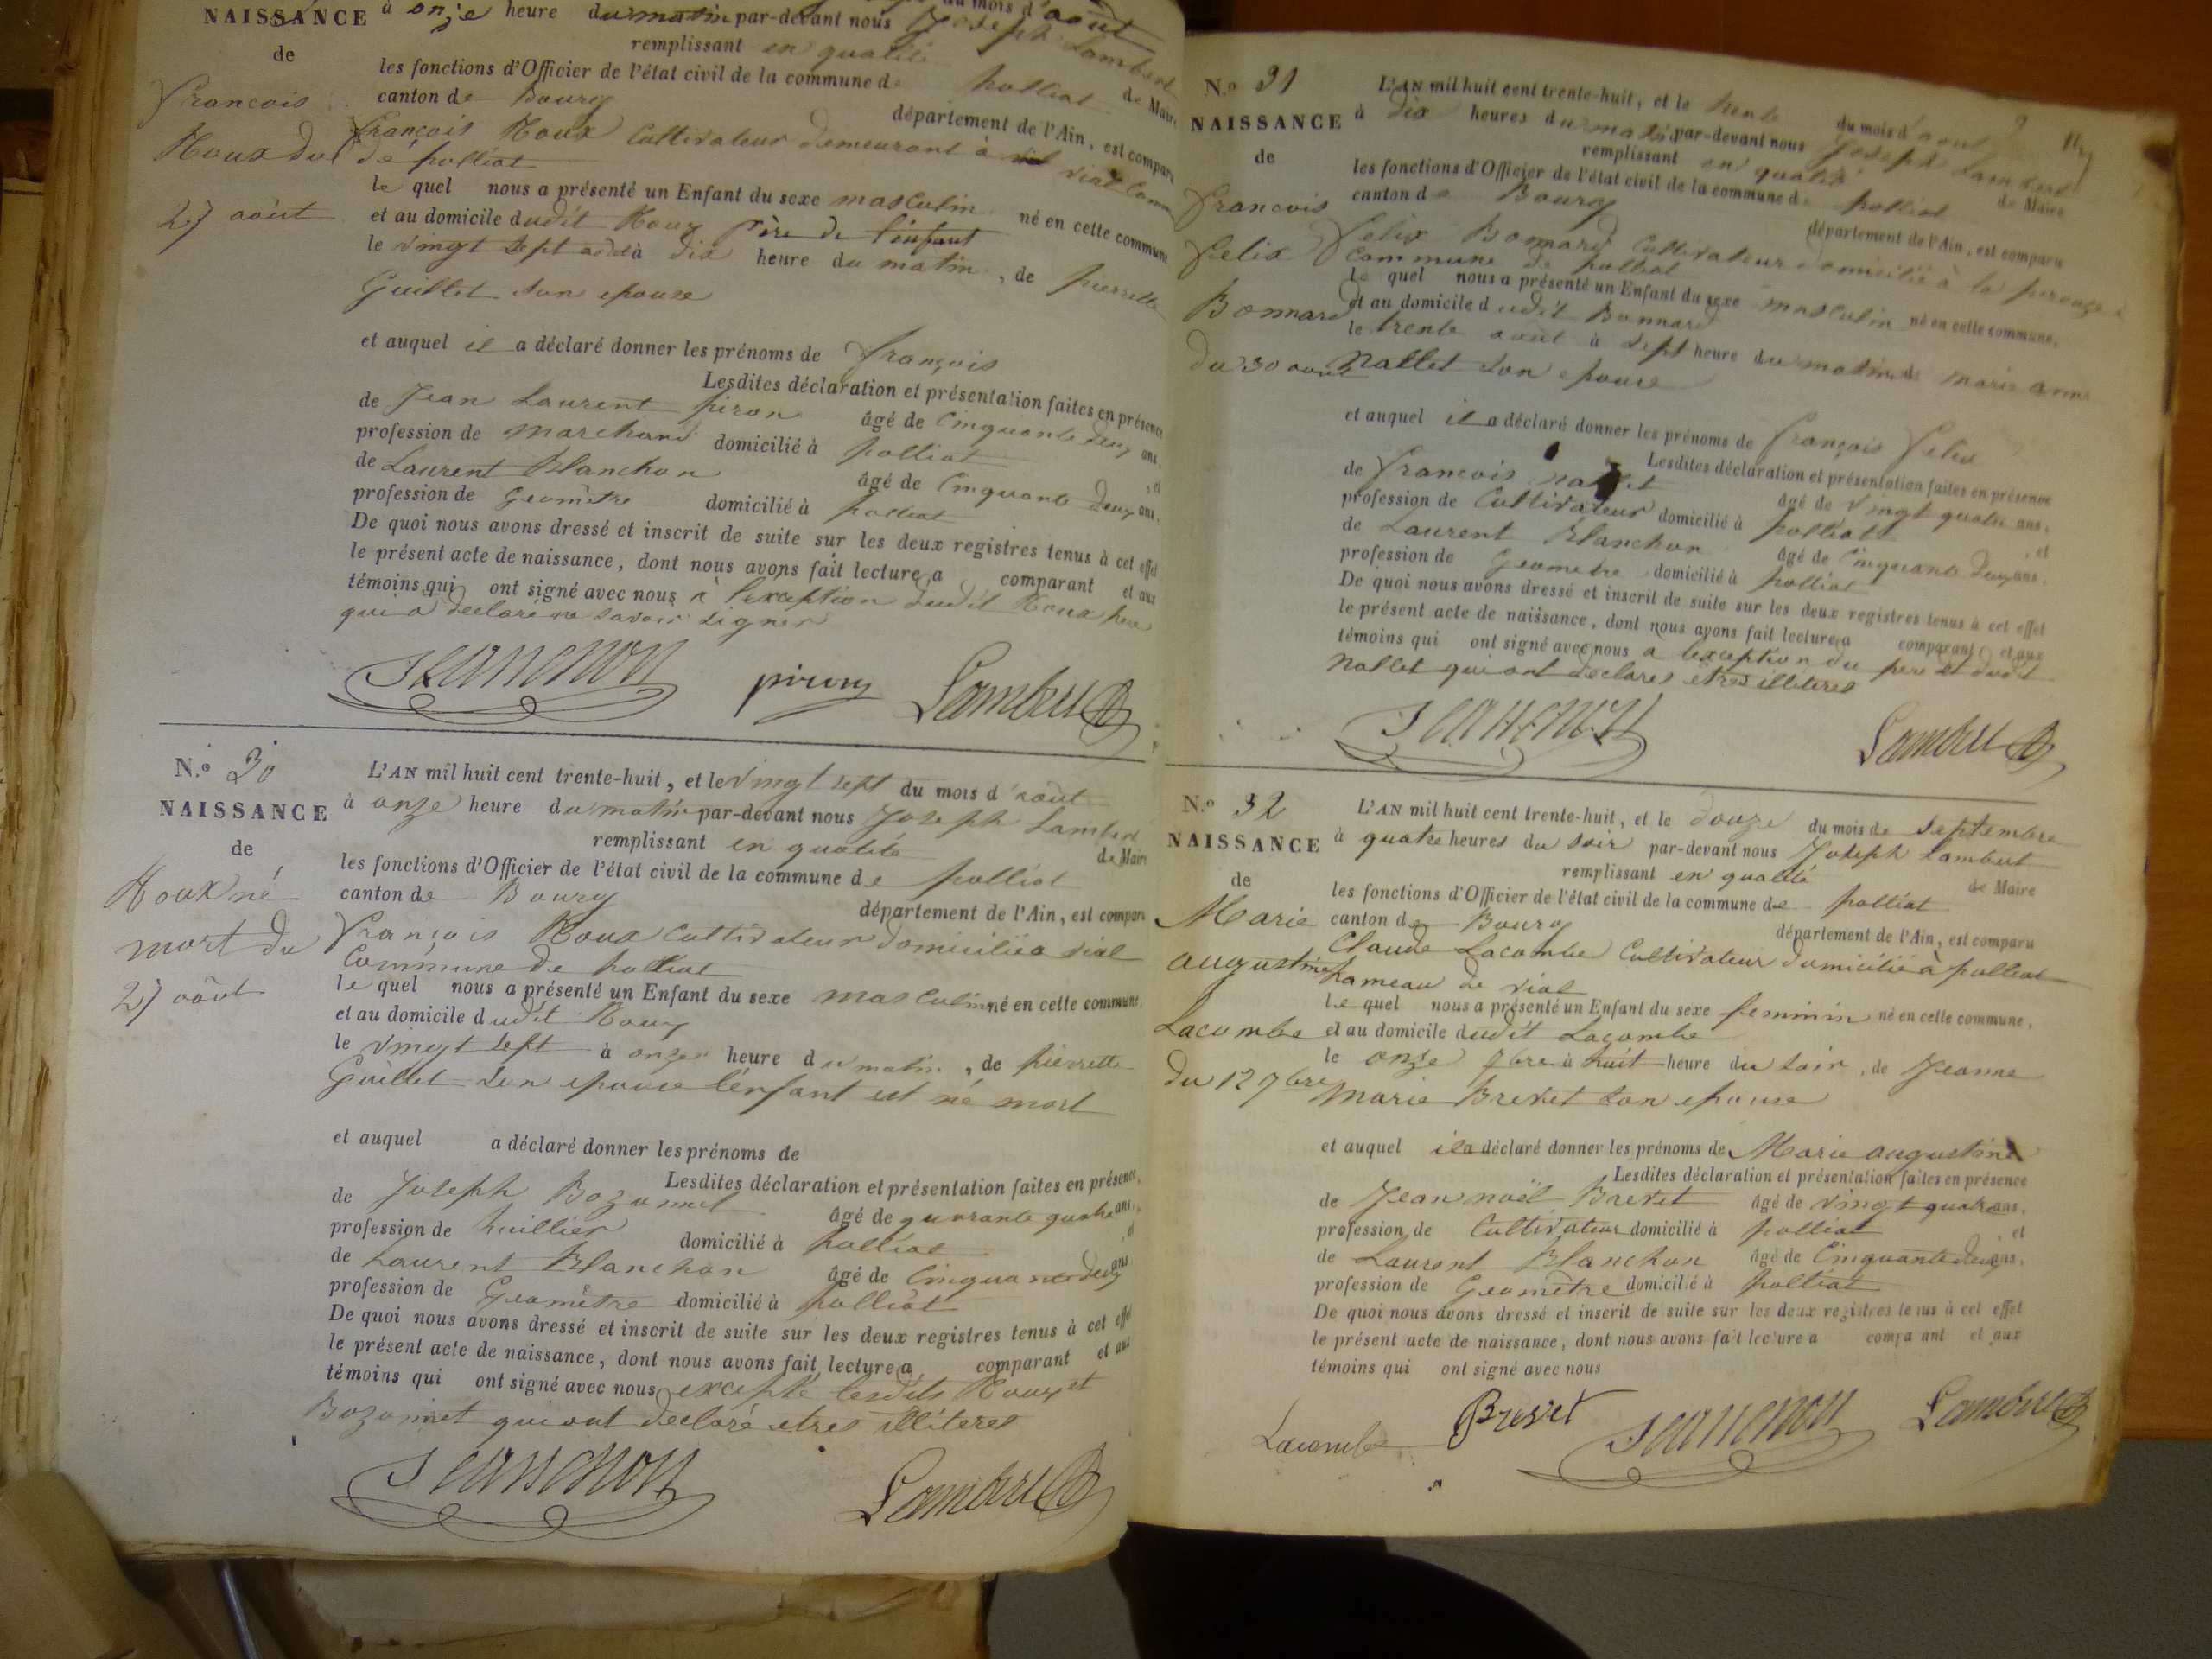 NAISSANCE
de
François
Roux du
27 août
du mois d'août
à onze heure du matin par-devant nous Joseph Lambert
remplissant en qualité de Maire
les fonctions d'Officier de l'état civil de la commune de polliat
canton de Bourg département de l'Ain, est comparu
françois Roux Cultivateur demeurant à vial Comm
de polliat
le quel nous a présenté un Enfant du sexe masculin né en cette commune
et au domicile dudit Roux père de l'enfant
le vingt sept août à dix heure du matin, de pierrette
Guillet son epouse
et auquel il a déclaré donner les prénoms de françois
Lesdites déclaration et présentation faites en présence
de Jean Laurent piron âgé de Cinquante deux ans,
profession de marchand domicilié à polliat, et
de Laurent Blanchon âgé de Cinquante deux ans,
profession de Géomètre domicilié à polliat
De quoi nous avons dressé et inscrit de suite sur les deux registres tenus à cet effet
le présent acte de naissance, dont nous avons fait lecture a comparant et aux
témoins qui ont signé avec nous à l'exception dudit Roux père
qui a déclaré ne savoir signer
Blanchon piron Lambert
N.º 30
NAISSANCE
de
Roux né
mort du
27 août
L'AN mil huit cent trente-huit, et le vingt sept du mois d'août
à onze heure du matin par-devant nous Joseph Lambert
remplissant en qualité de Maire
les fonctions d'Officier de l'état civil de la commune de polliat
canton de Bourg département de l'Ain, est comparu
françois Roux Cultivateur domicilié a vial
Commune de polliat
le quel nous a présenté un Enfant du sexe masculin né en cette commune,
et au domicile dudit Roux
le vingt sept à onze heure du matin, de pierrette
Guillet son epouse l'enfant est né mort
et auquel a déclaré donner les prénoms de
Lesdites déclaration et présentation faites en présence,
de Joseph Bozonnet âgé de quarante quatre ans,
profession de huillier domicilié à polliat et
de Laurent Blanchon âgé de Cinquante deux ans
profession de Géomètre domicilié à polliat
De quoi nous avons dressé et inscrit de suite sur les deux registres tenus à cet effet
le présent acte de naissance, dont nous avons fait lecture a comparant et aux
témoins qui ont signé avec nous excepté lesdits Roux et
Bozonnet qui ont déclaré etres illiteres
Blanchon Lambert
N.º 31
NAISSANCE
de
François
felix
Bonnard
du 30 août
L'AN mil huit cent trente-huit, et le trente du mois d'aout
à dix heures du matin par-devant nous Joseph Lambert
remplissant en qualité de Maire
les fonctions d'Officier de l'état civil de la commune de polliat
canton de Bourg département de l'Ain, est comparu
felix Bonnard Cultivateur domicilié à la perouze
Commune de polliat
le quel nous a présenté un Enfant du sexe masculin né en cette commune,
et au domicile dudit Bonnard
le trente août à sept heure du matin, de marie anne
Nallet son epouse
et auquel il a déclaré donner les prénoms de françois felix
Lesdites déclaration et présentation faites en présence
de françois nallet âgé de vingt quatre ans,
profession de Cultivateur domicilié à polliat, et
de Laurent Blanchon âgé de Cinquante deux ans,
profession de Géomètre domicilié à polliat
De quoi nous avons dressé et inscrit de suite sur les deux registres tenus à cet effet
le présent acte de naissance, dont nous avons fait lecture a comparant et aux
témoins qui ont signé avec nous a l'exception du pere et dudit
Nallet qui ont déclarés etres illiteres
Blanchon Lambert
N.º 32
NAISSANCE
de
Marie
augustine
Lacombe
du 12 7bre
L'AN mil huit cent trente-huit, et le douze du mois de septembre
à quatre heures du soir par-devant nous Joseph Lambert
remplissant en qualité de Maire
les fonctions d'Officier de l'état civil de la commune de polliat
canton de Bourg département de l'Ain, est comparu
Claude Lacombe Cultivateur domicilié à polliat
hameau de vial
le quel nous a présenté un Enfant du sexe feminin né en cette commune,
et au domicile dudit Lacombe
le onze 7bre à huit heure du soir, de Jeanne
Marie Brevet son epouse
et auquel il a déclaré donner les prénoms de Marie augustine
Lesdites déclaration et présentation faites en présence
de Jean noël Brevet âgé de vingt quatre ans,
profession de Cultivateur domicilié à polliat, et
de Laurent Blanchon âgé de Cinquante deux ans,
profession de Géomètre domicilié à polliat
De quoi nous avons dressé et inscrit de suite sur les deux registres tenus à cet effet
le présent acte de naissance, dont nous avons fait lecture a comparant et aux
témoins qui ont signé avec nous
Lacombe Brevet Blanchon Lambert